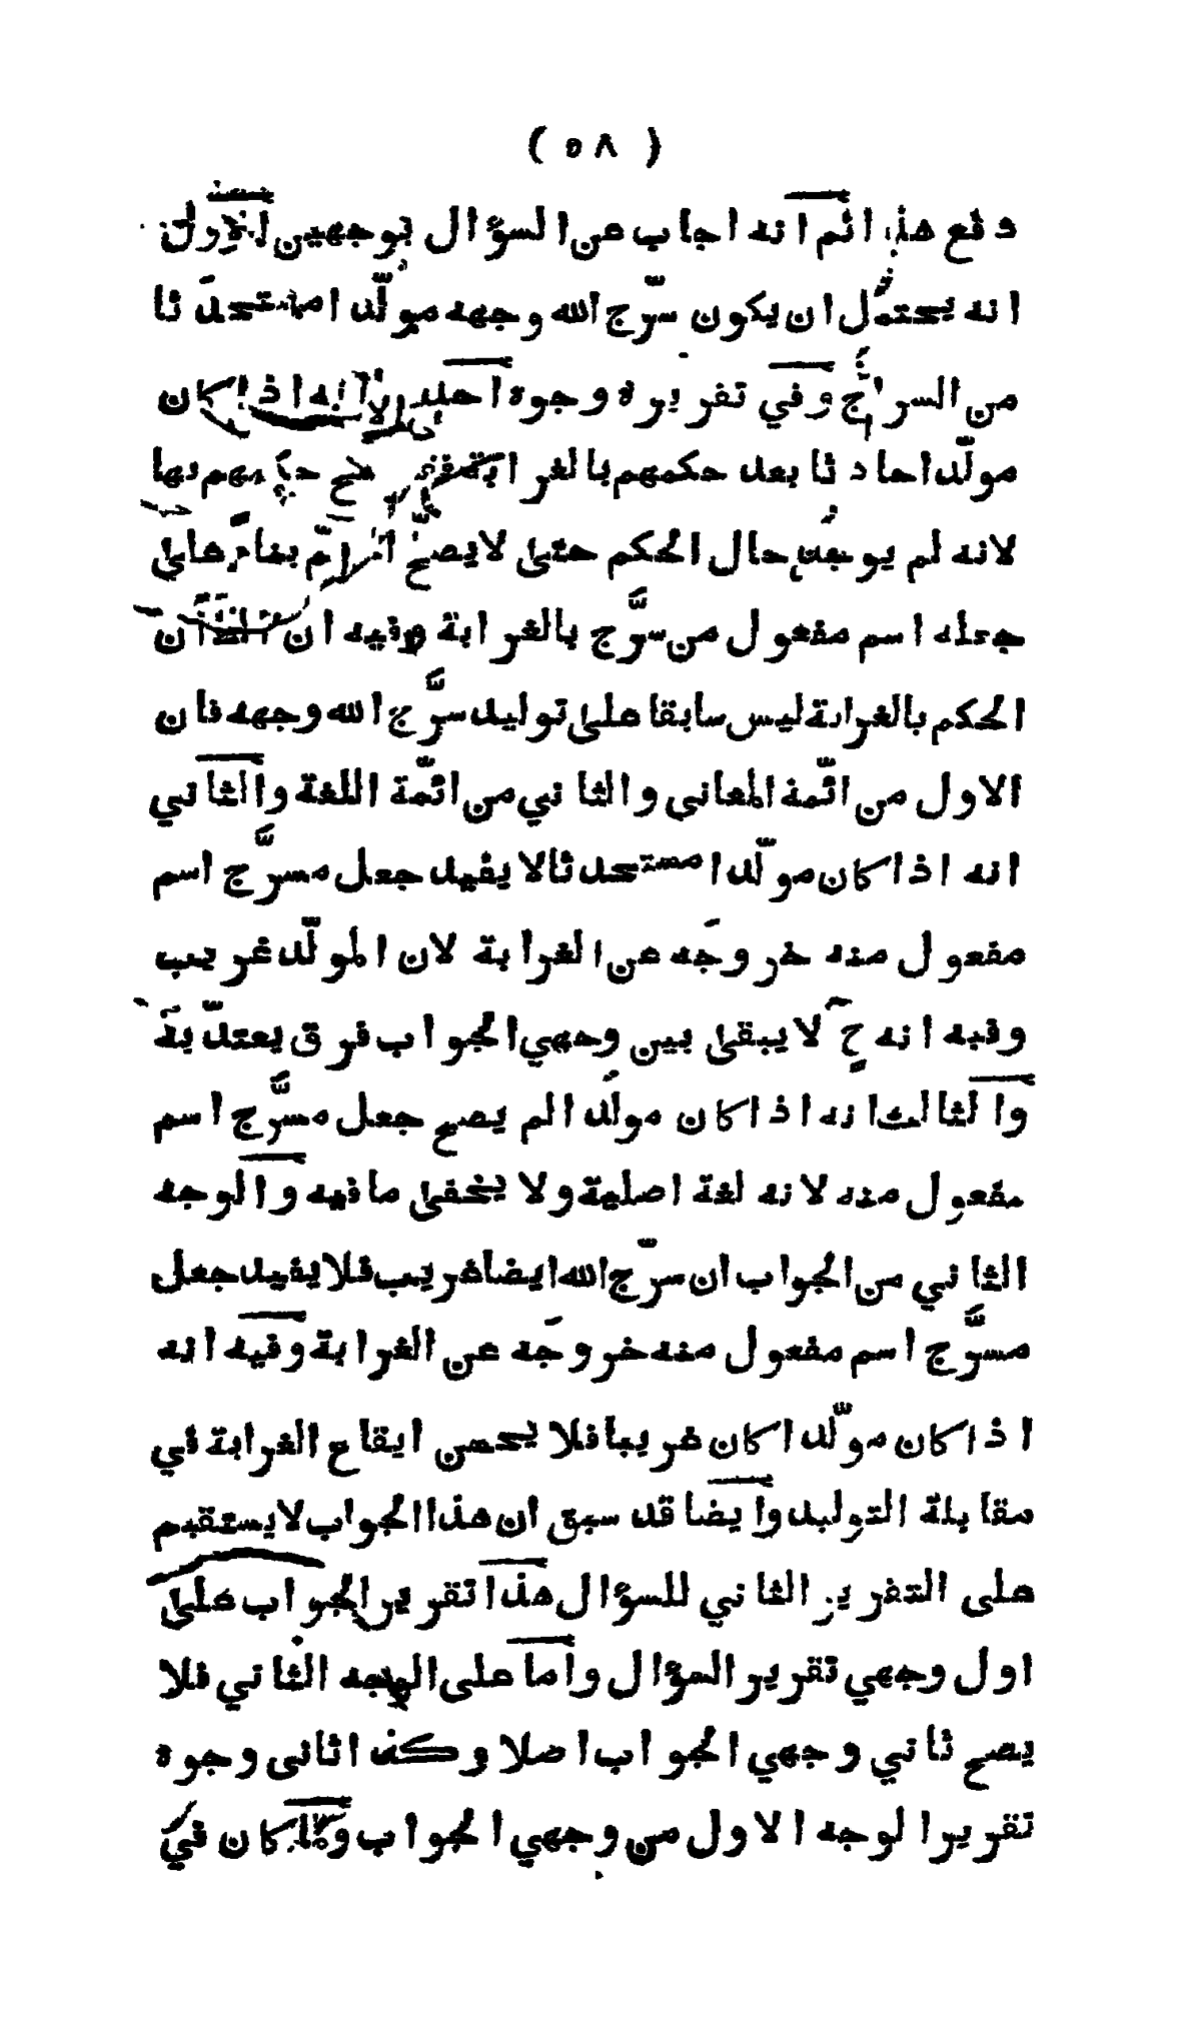 ( ٥٨ )
دفع هذا ثم انه اجاب عن السؤال بوجهين الاول
انه يحتمل ان يكون سرّج الله وجهه مولّدا مستحدثا
من السراج وفي تقريره وجوه احدها انه اذا كان
مولّدا حادثا بعد حكمهم بالغرابة حكمهم بها
لانه لم يوجد حال الحكم حتى لا يصح انه تم بناء على
جعله اسم مفعول من سرَّج بالغرابة وفيه ان
الحكم بالغرابة ليس سابقا على توليد سرَّج الله وجهه فان
الاول من ائمّة المعاني والثاني من ائمّة اللغة والثاني
انه اذا كان مولّدا مستحدثا لا يفيد جعل مسرَّج اسم
مفعول منه خروجَه عن الغرابة لان المولّد غريب
وفيه انه ح لا يبقى بين وجهي الجواب فرق يعتدّ به
والثالث انه اذا كان مولَّدا لم يصح جعل مسرَّج اسم
مفعول منه لانه لغة اصلية ولا يخفى ما فيه والوجه
الثاني من الجواب ان سرّج الله ايضا غريب فلا يفيد جعل
مسرَّج اسم مفعول منه خروجَه عن الغرابة وفيه انه
اذا كان مولّدا كان غريبا فلا يحسن ايقاع الغرابة في
مقابلة التوليد وايضا قد سبق ان هذا الجواب لا يستقيم
على التقرير الثاني للسؤال هذا تقرير الجواب على
اول وجهي تقرير السؤال واما على الوجه الثاني فلا
يصح ثاني وجهي الجواب اصلا وكذا ثانى وجوه
تقرير الوجه الاول من وجهي الجواب كان في